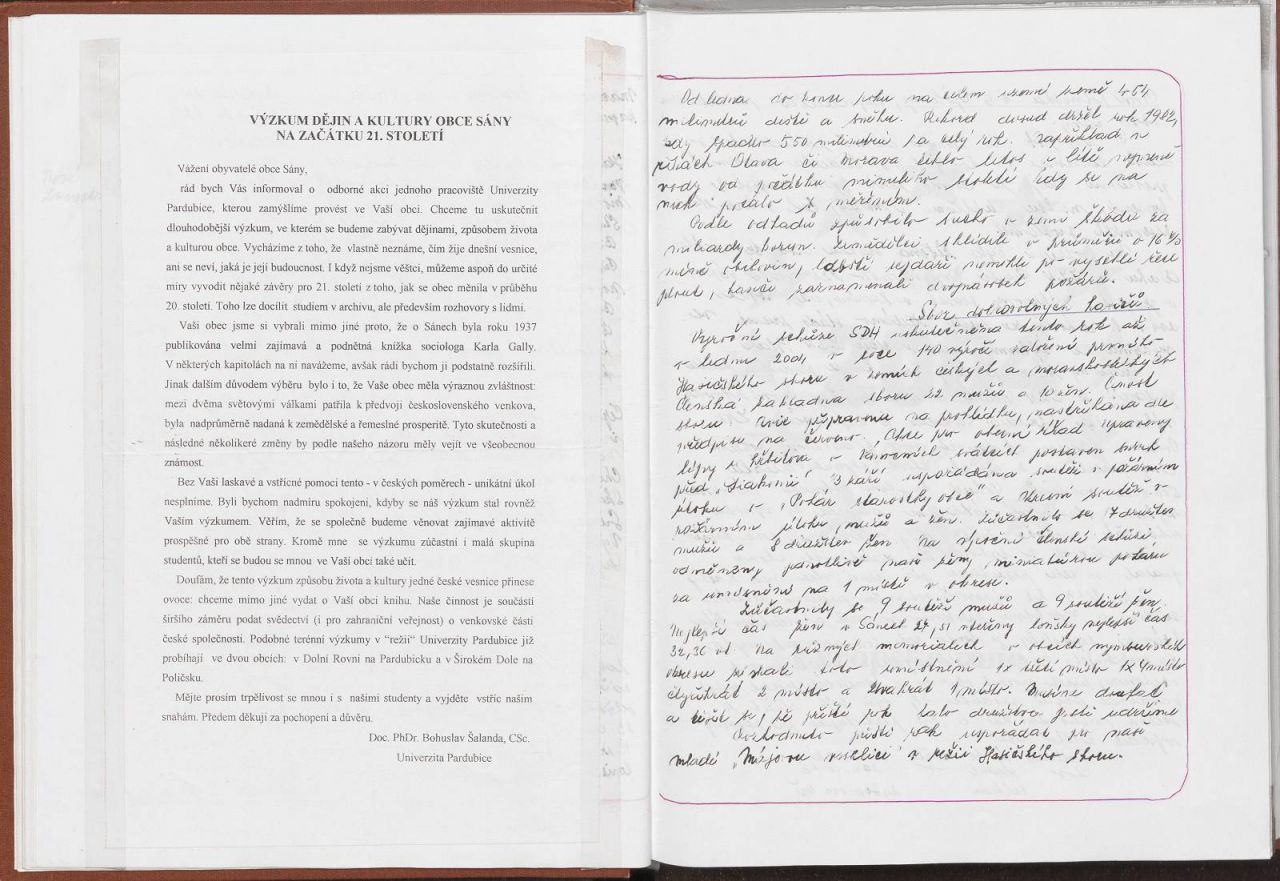 VÝZKUM DĚJIN A KULTURY OBCE SÁNY
NA ZAČÁTKU 21. STOLETÍ
Vážení obyvatelé obce Sány,
rád bych Vás informoval o odborné akci jednoho pracoviště Univerzity
Pardubice, kterou zamýšlíme provést ve Vaší obci. Chceme tu uskutečnit
dlouhodobější výzkum, ve kterém se budeme zabývat dějinami, způsobem života
a kulturou obce. Vycházíme z toho, že vlastně neznáme, čím žije dnešní vesnice,
ani se neví, jaká je její budoucnost. I když nejsme věštci, můžeme aspoň do určité
míry vyvodit nějaké závěry pro 21. století z toho, jak se obec měnila v průběhu
20. století. Toho lze docílit studiem v archivu, ale především rozhovory s lidmi.
Vaši obec jsme si vybrali mimo jiné proto, že o Sánech byla roku 1937
publikována velmi zajímavá a podnětná knížka sociologa Karla Gally.
V některých kapitolách na ni navážeme, avšak rádi bychom ji podstatně rozšířili.
Jinak dalším důvodem výběru bylo i to, že Vaše obec měla výraznou zvláštnost:
mezi dvěma světovými válkami patřila k předvoji československého venkova,
byla nadprůměrně nadaná k zemědělské a řemeslné prosperitě. Tyto skutečnosti a
následné několikeré změny by podle našeho názoru měly vejít ve všeobecnou
známost.
Bez Vaší laskavé a vstřícné pomoci tento - v českých poměrech - unikátní úkol
nesplníme. Byli bychom nadmíru spokojeni, kdyby se náš výzkum stal rovněž
Vaším výzkumem. Věřím, že se společně budeme věnovat zajímavé aktivitě
prospěšné pro obě strany. Kromě mne se výzkumu zúčastní i malá skupina
studentů, kteří se budou se mnou ve Vaší obci také učit.
Doufám, že tento výzkum způsobu života a kultury jedné české vesnice přinese
ovoce: chceme mimo jiné vydat o Vaší obci knihu. Naše činnost je součástí
širšího záměru podat svědectví (i pro zahraniční veřejnost) o venkovské části
české společnosti. Podobné terénní výzkumy v "režii" Univerzity Pardubice již
probíhají ve dvou obcích: v Dolní Rovni na Pardubicku a v Širokém Dole na
Poličsku.
Mějte prosím trpělivost se mnou i s našimi studenty a vyjděte vstříc našim
snahám. Předem děkuji za pochopení a důvěru.
Doc. PhDr. Bohuslav Šalanda, CSc.
Univerzita Pardubice
Od ledna do konce roku na celém území země 454
milimetrů deště a sněhu. Rekord dosud držel rok 1982,
kdy spadlo 550 milimetrů za celý rok. Například v
řekách Otava či Morava teklo letos v létě nejméně
vody od počátku minulého století kdy se na
nich počalo s měřením.
Podle odhadů způsobilo sucho v zemi škodu za
miliardy korun. Zemědělci sklidili v průměru o 16 %
méně obilovin, lodě nemohli po vyschlé řece
plout, hasiči zaznamenali dvojnásobek požárů.
Sbor dobrovolných hasičů
Výroční schůze SDH uskutečněna tento rok až
v lednu 2004 v roce 140 výročí založení prvního
Hasičského sboru v zemích českých a moravskoslezských
Členská základna sboru 22 mužů a 10 žen. Činnost
sboru připravena na prohlídku, nastříkána dle
předpisu na červeno. pro obecní úřad upraveny
lípy u hřbitova o vánočních svátcích postaven smrk
před "Diakonií" 3 září uspořádána soutěž v požárním
útoku o "Pohár starostky obce" a soutěž v
požárním útoku, mužů a žen. Zúčastnilo se 7 družstev
mužů a 8 družstev žen. Na výroční členské schůzi
odměněny jednotlivě naše ženy, miniaturou poháru
za umístění na 1 místě v okrese.
Zúčastnily se 9 soutěží mužů a 9 soutěží žen.
Nejlepší čas žen v Sánech 27,51 vteřiny loňský nejlepší čas
32,36 vt. Na různých memoriálech v obcích nymburského
okresu získali toto umístnění 1x třetí místo 1x 4 místo
čtyřikrát 2 místo a dvakrát 1 místo. Musíme doufat
a těšit se, že příští rok tato družstva udržíme
Rozhodnuto příští rok uspořádat pro naši
mládež "Májovou veselici" v režii Hasičského sboru.